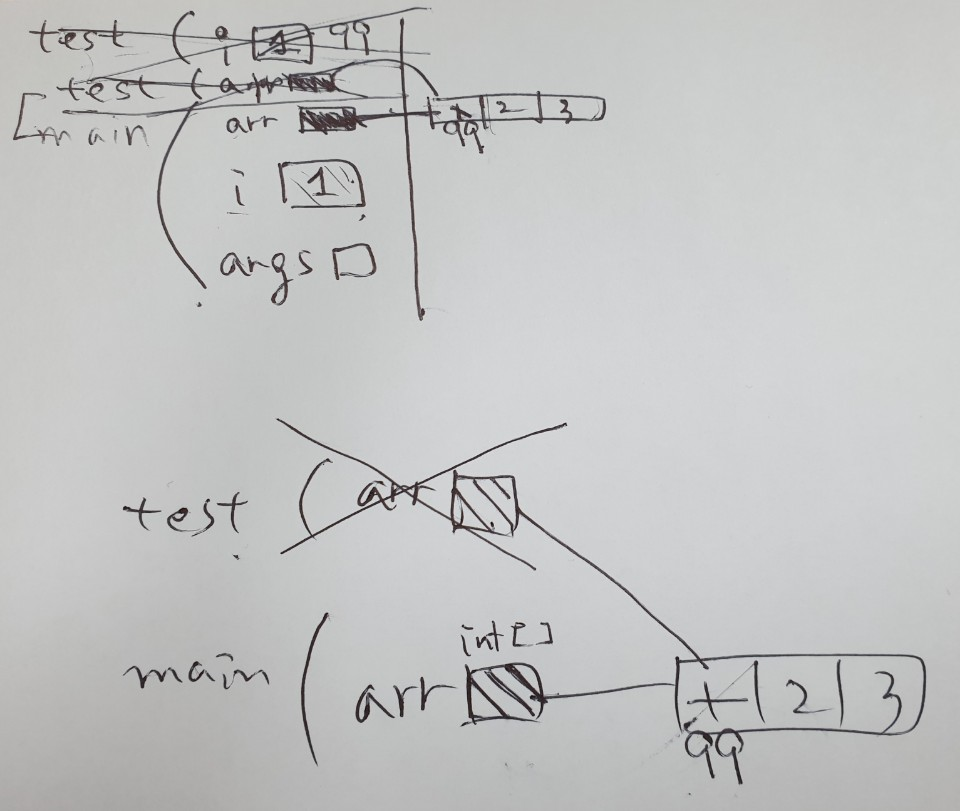 test ( i 1 99
test ( arr
[ main arr 1 2 3
99
i 1
args
test ( arr
int[]
main ( arr 1 2 3
99